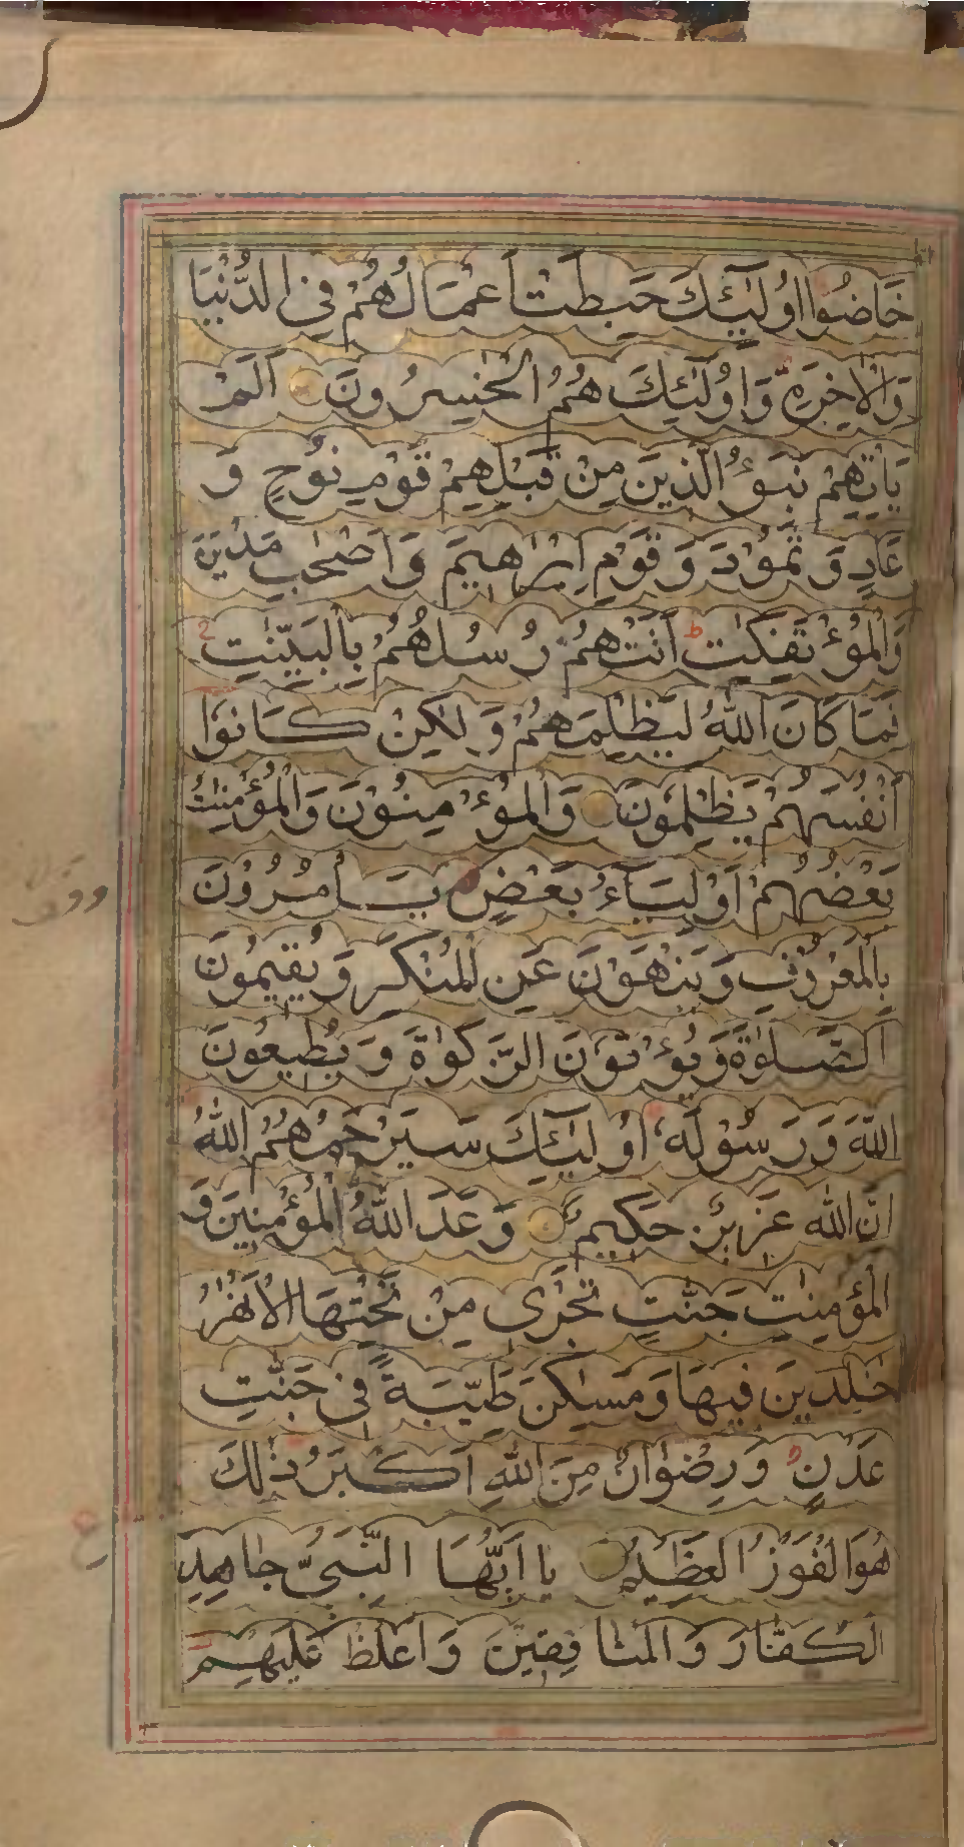 خَاضُوا اُولٰٓئِكَ حَبِطَتْ اَعْمَالُهُمْ فِى الدُّنْيَا
وَالْاٰخِرَةِ وَاُولٰٓئِكَ هُمُ الْخٰسِرُونَ اَلَمْ
يَاْتِهِمْ نَبَؤُ الَّذِينَ مِنْ قَبْلِهِمْ قَوْمِ نُوحٍ وَ
عَادٍ وَ ثَمُوْدَ وَ قَوْمِ اِبْرٰهِيمَ وَ اَصْحٰبِ مَدْيَنَ
وَالْمُؤْتَفِكٰتِ اَتَتْهُمْ رُسُلُهُمْ بِالْبَيِّنٰتِ
فَمَا كَانَ اللّٰهُ لِيَظْلِمَهُمْ وَ لٰكِنْ كَانُوا
اَنْفُسَهُمْ يَظْلِمُونَ وَالْمُؤْمِنُوْنَ وَالْمُؤْمِنٰتُ
بَعْضُهُمْ اَوْلِيَآءُ بَعْضٍ يَاْمُرُوْنَ
بِالْمَعْرُوْفِ وَ يَنْهَوْنَ عَنِ الْمُنْكَرِ وَ يُقِيمُونَ
الصَّلٰوةَ وَ يُؤْتُوْنَ الزَّكٰوةَ وَ يُطِيعُونَ
اللّٰهَ وَ رَسُوْلَهُ اُولٰٓئِكَ سَيَرْحَمُهُمُ اللّٰهُ
اِنَّ اللّٰهَ عَزِيزٌ حَكِيمٌ وَعَدَ اللّٰهُ الْمُؤْمِنِينَ وَ
الْمُؤْمِنٰتِ جَنّٰتٍ تَجْرِى مِنْ تَحْتِهَا الْاَنْهٰرُ
خٰلِدِينَ فِيهَا وَ مَسٰكِنَ طَيِّبَةً فِى جَنّٰتِ
عَدْنٍ وَ رِضْوَانٌ مِنَ اللّٰهِ اَكْبَرُ ذٰلِكَ
هُوَ الْفَوْزُ الْعَظِيمُ يَا اَيُّهَا النَّبِىُّ جَاهِدِ
الْكُفَّارَ وَ الْمُنَافِقِيْنَ وَ اغْلُظْ عَلَيْهِمْ